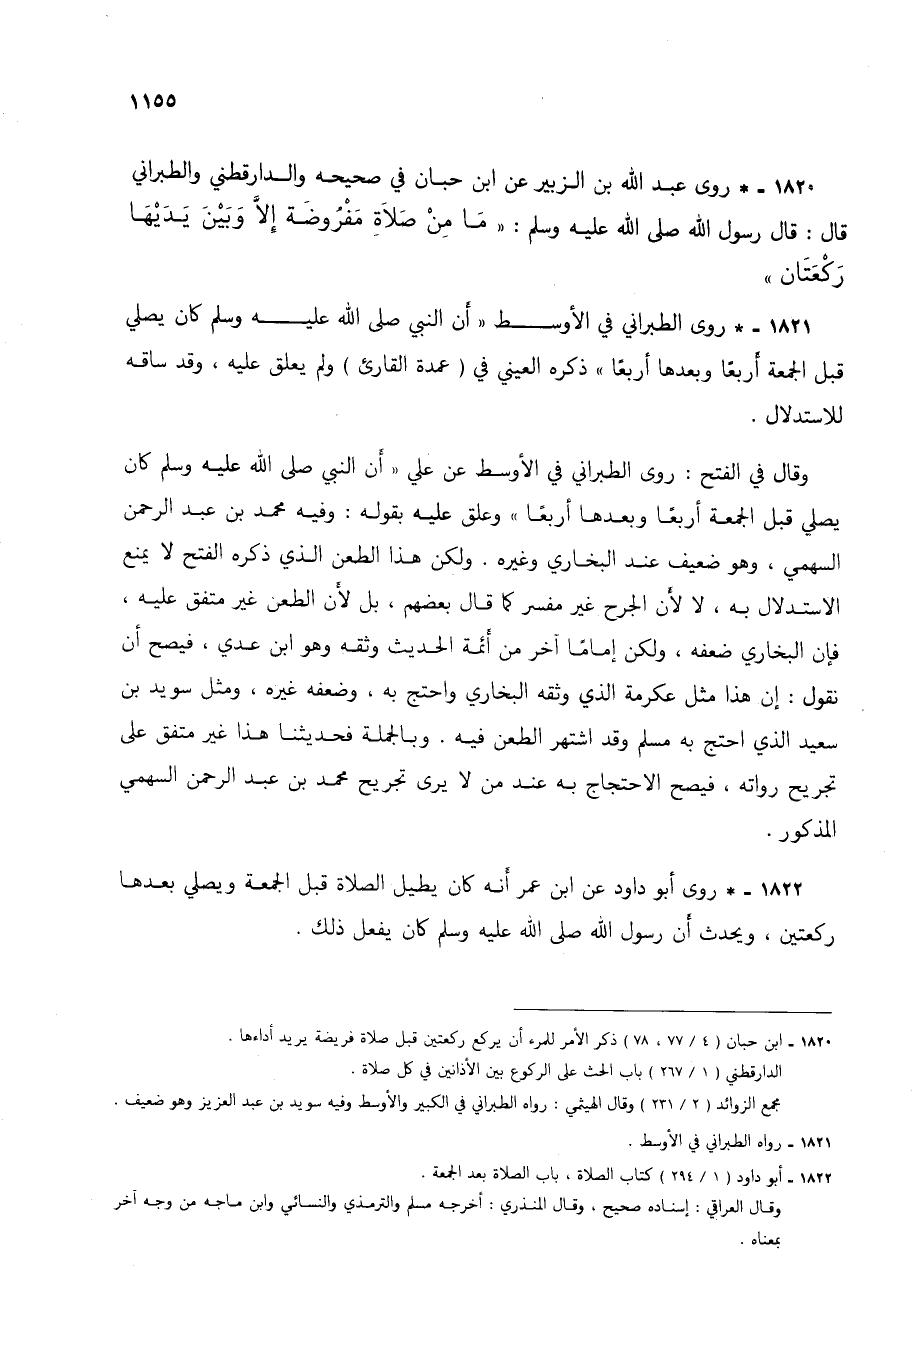 ١١٥٥
١٨٢٠ - * روى عبد الله بن الزبير عن ابن حبان في صحيحه والدارقطني والطبراني
قال : قال رسول الله صلى الله عليه وسلم : « مَا مِنْ صَلاَةٍ مَفْرُوضَة إِلاَّ وَبَيْنَ يَدَيْهَا
رَكْعَتَان »
١٨٢١ - * روى الطبراني في الأوسط « أن النبي صلى الله عليه وسلم كان يصلي
قبل الجمعة أربعًا وبعدها أربعًا » ذكره العيني في ( عمدة القارئ ) ولم يعلق عليه ، وقد ساقه
للاستدلال .
وقال في الفتح : روى الطبراني في الأوسط عن علي « أن النبي صلى الله عليه وسلم كان
يصلي قبل الجمعة أربعًا وبعدها أربعًا » وعلق عليه بقوله : وفيه محمد بن عبد الرحمن
السهمي ، وهو ضعيف عند البخاري وغيره . ولكن هذا الطعن الذي ذكره الفتح لا يمنع
الاستدلال به ، لا لأن الجرح غير مفسر كما قال بعضهم ، بل لأن الطعن غير متفق عليه ،
فإن البخاري ضعفه ، ولكن إمامًا آخر من أئمة الحديث وثقه وهو ابن عدي ، فيصح أن
نقول : إن هذا مثل عكرمة الذي وثقه البخاري واحتج به ، وضعفه غيره ، ومثل سويد بن
سعيد الذي احتج به مسلم وقد اشتهر الطعن فيه . وبالجملة فحديثنا هذا غير متفق على
تجريح رواته ، فيصح الاحتجاج به عند من لا يرى تجريح محمد بن عبد الرحمن السهمي
المذكور .
١٨٢٢ - * روى أبو داود عن ابن عمر أنه كان يطيل الصلاة قبل الجمعة ويصلي بعدها
ركعتين ، ويحدث أن رسول الله صلى الله عليه وسلم كان يفعل ذلك .
١٨٢٠ - ابن حبان ( ٤ / ٧٧ ، ٧٨ ) ذكر الأمر للمرء أن يركع ركعتين قبل صلاة فريضة يريد أداءها .
الدارقطني ( ١ / ٢٦٧ ) باب الحث على الركوع بين الأذانين في كل صلاة .
مجمع الزوائد ( ٢ / ٢٣١ ) وقال الهيثمي : رواه الطبراني في الكبير والأوسط وفيه سويد بن عبد العزيز وهو ضعيف .
١٨٢١ - رواه الطبراني في الأوسط .
١٨٢٢ - أبو داود ( ١ / ٢٩٤ ) كتاب الصلاة ، باب الصلاة بعد الجمعة .
وقال العراقي : إسناده صحيح ، وقال المنذري : أخرجه مسلم والترمذي والنسائي وابن ماجه من وجه آخر
بمعناه .